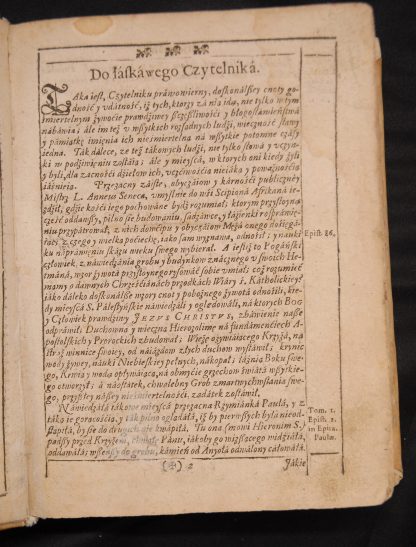 Do łáskáwego Czytelniká.
TAka iest, Czytelniku práwowierny, doskonálszey cnoty go-
dność y vdátność, iż tych, ktorzy zá nią idą, nie tylko w tym
śmiertelnym żywoćie prawdźiwey szczęśliwośći y błogosłáwieństwá
nábáwia; ále im też v wszytkich rozsądnych ludźi, wieczność sławy
y pámiątkę imienia ich nieśmiertelną ná wszytkie potomne czásy
iedna. Ták dálece, że też tákowych ludźi, nie tylko słowá y vczyn-
ki w podźiwieniu zostáią; ále y mieyscá, w ktorych oni kiedy żyli
y byli, dla zacnośći dźiełow ich, vczćiwośćią nieiáką y poważnośćią
iáśnieią. Przezacny záiste, obyczáiow y kárnośći publiczney
Mistrz L. Annæus Seneca, vmyślnie do wśi Scipioná Afrikaná ie-
źdźił, gdźie kośći iego pochowáne bydź rozumiał: ktorym przystoyną
cześć oddawszy, pilno sie budowániu, sádzawce, y łáźienki rosprzęże-
niu przypátrował, z nich dowćipu y obyczáiow Mężá onego dośięgá-
iąc; z czego y wielką poćiechę, iáko sam wyznawa, odnośił; y nauki
ku nápráwieniu skázy wieku swego wybierał. A iesliż to Pogáński
człowiek, z náwiedzánia grobu y budynkow znácznego v swoich Het-
máná, wzor żywotá przystoynego rysowáć sobie vmiał; coż rozumieć
mamy o dawnych Chrześćiánách przodkách Wiáry ś. Kátholickiey?
iáko dáleko doskonálsze wzory cnoty y pobożnego żywotá odnośili, kie-
dy mieyscá S. Pálestyńskie náwiedzáli y oglądowáli, ná ktorych BOG
y Człowiek prawdźiwy JEZVS CHRISTVS, zbáwienie nasze
odpráwił: Duchowną y wieczną Hierozolimę ná fundámentách A-
postolskich y Prorockich zbudował; Wieżę ożywiáiącego Krzyżá, ná
stroż winnice swoiey, od náiázdow złych duchow wystáwił; krynic
wody żywey, náuki Niebieskiey pełnych, nákopał; łáźnią Boku swe-
go, Krwią y wodą opływáiącą, ná obmyćie grzechow świátá wszytkie-
go otworzył; á náostátek, chwalebny Grob zmartwychwstánia swe-
go, przyszłey nászey nieśmiertelnośći zadátek zostáwił.
Náwiedźáłá tákowe mieyscá przezacna Rzymiánká Paulá, y z
táko ie gorącośćią, y ták pilno oglądáłá, iż by pierwszych byłá nieod-
stąpiłá, by sie do drugich nie kwápiłá. Tu oná (mowi Hieronim S.)
padszy przed Krzyżem, chwałę Pánu, iákoby go wiszącego widźiáłá,
oddawáłá; wszedszy do grobu, kámień od Anyołá odwálony cáłowáłá.
Epist 86.
Tom. 1.
Epist. 1.
in Epita.
Paulæ.
(✠) 2
Jákie